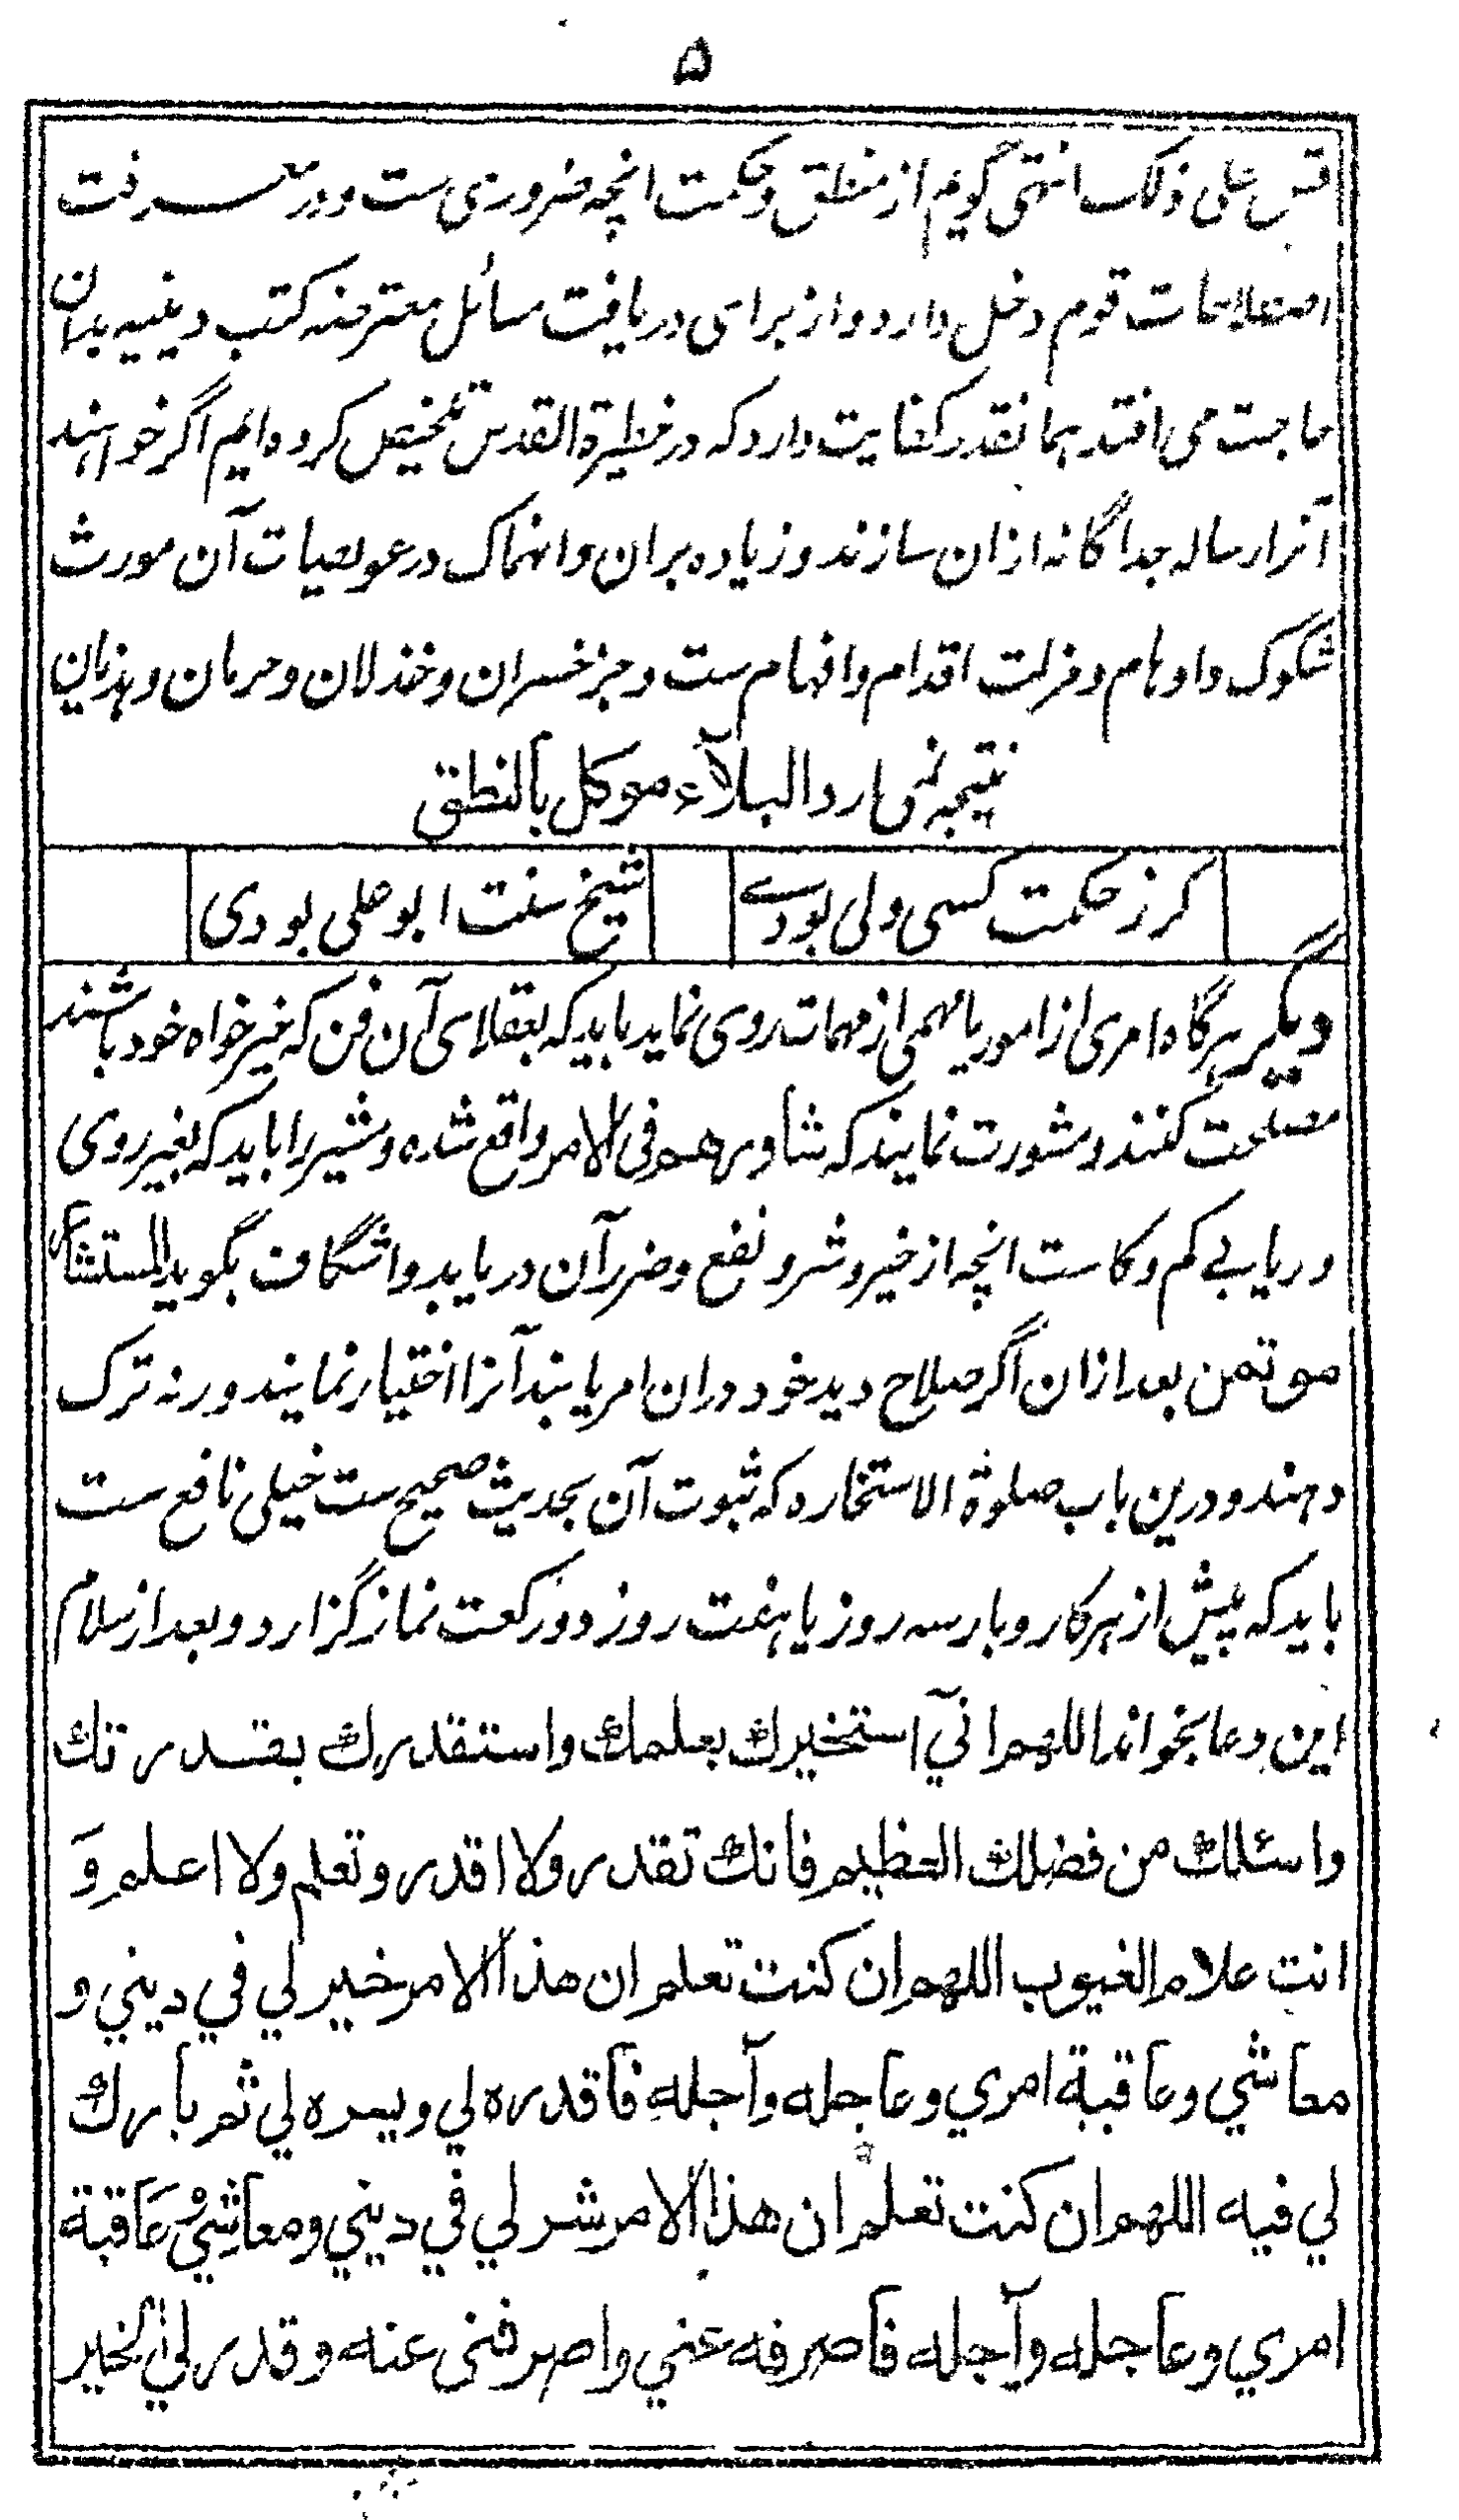 ۵
قس علی ذلک انتهی گویم از منطق و حکمت انچه ضروری ست و در معرفت
اصطلاحات قوم دخل دارد و از برای دریافت مسائل معترضه کتب دینیه بدان
حاجت می افتد همانقدر کفایت دارد که در خطیرة القدس تلخیص کرده ایم اگر خواهند
آنرا رساله جداگانه ازان سازند و زیاده بران و انهماک در عویصات آن مورث
شکوک و اوهام و مزلت اقدام و افهام ست و جز خسران و خذلان و حرمان و هذیان
نتیجه نمی آرد البلآء موکل بالنطق
گر ز حکمت کسی ولی بودے
شیخ سنت ابو علی بودی
دیگر هرگاه امری از امور یا مهمی از مهمات روی نماید باید که بعقلای آن فن که خیر خواه خود باشند
مصلحت کنند و مشورت نمایند که شاورهم فی الامر واقع شده و مشیر را باید که بغیر روی
و ریا بے کم و کاست انچه از خیر و شر و نفع و ضرر آن دریابد واشگاف بگوید المستشار
موتمن بعد ازان اگر صلاح دید خود دران امر یابند آنرا اختیار نمایند ورنه ترک
دهند و درین باب صلوة الاستخاره که ثبوت آن بحدیث صحیح ست خیلی نافع ست
باید که پیش از هر کار و بار سه روز یا هفت روز دو رکعت نماز گزارد و بعد از سلام
این دعا بخواند اللهم اني استخيرك بعلمك واستقدرك بقدرتك
واسئلك من فضلك العظيم فانك تقدر ولا اقدر وتعلم ولا اعلم وَ
انت علام الغيوب اللهم ان كنت تعلم ان هذا الامر خير لي في ديني و
معاشي وعاقبة امري وعاجله وآجله فاقدره لي ويسره لي ثم بارك
لي فيه اللهم ان كنت تعلم ان هذا الامر شر لي في ديني ومعاشي وعاقبة
امري وعاجله وآجله فاصرفه عني واصرفنى عنه وقدر لي الخير